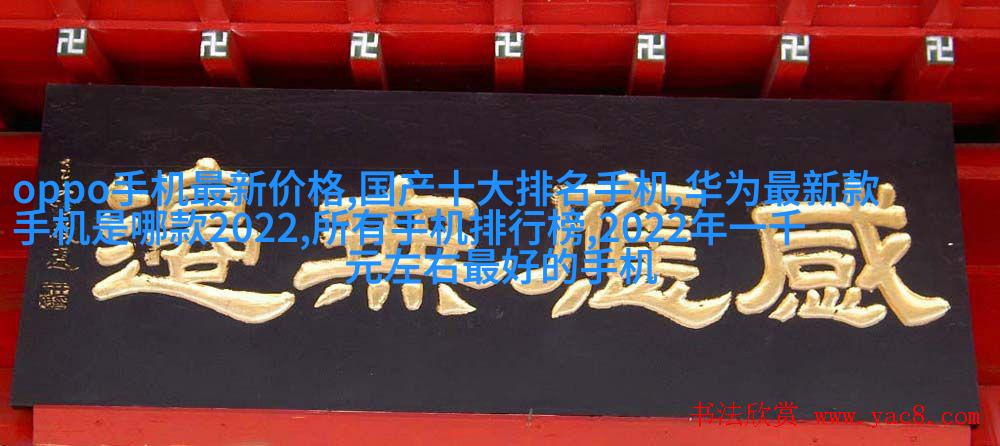 oppo手机最新价格,国产十大排名手机,华为最新款
手机是哪款2022,所有手机排行榜,2022年一千
元左右最好的手机
感應無
书法欣赏 www.yac8.com